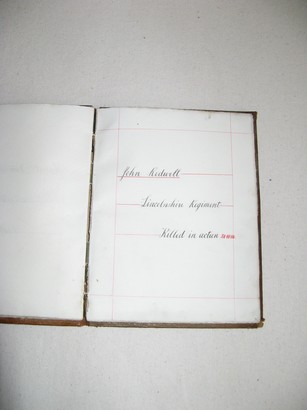 John Kedwell
Lincolnshire Regiment
Killed in action